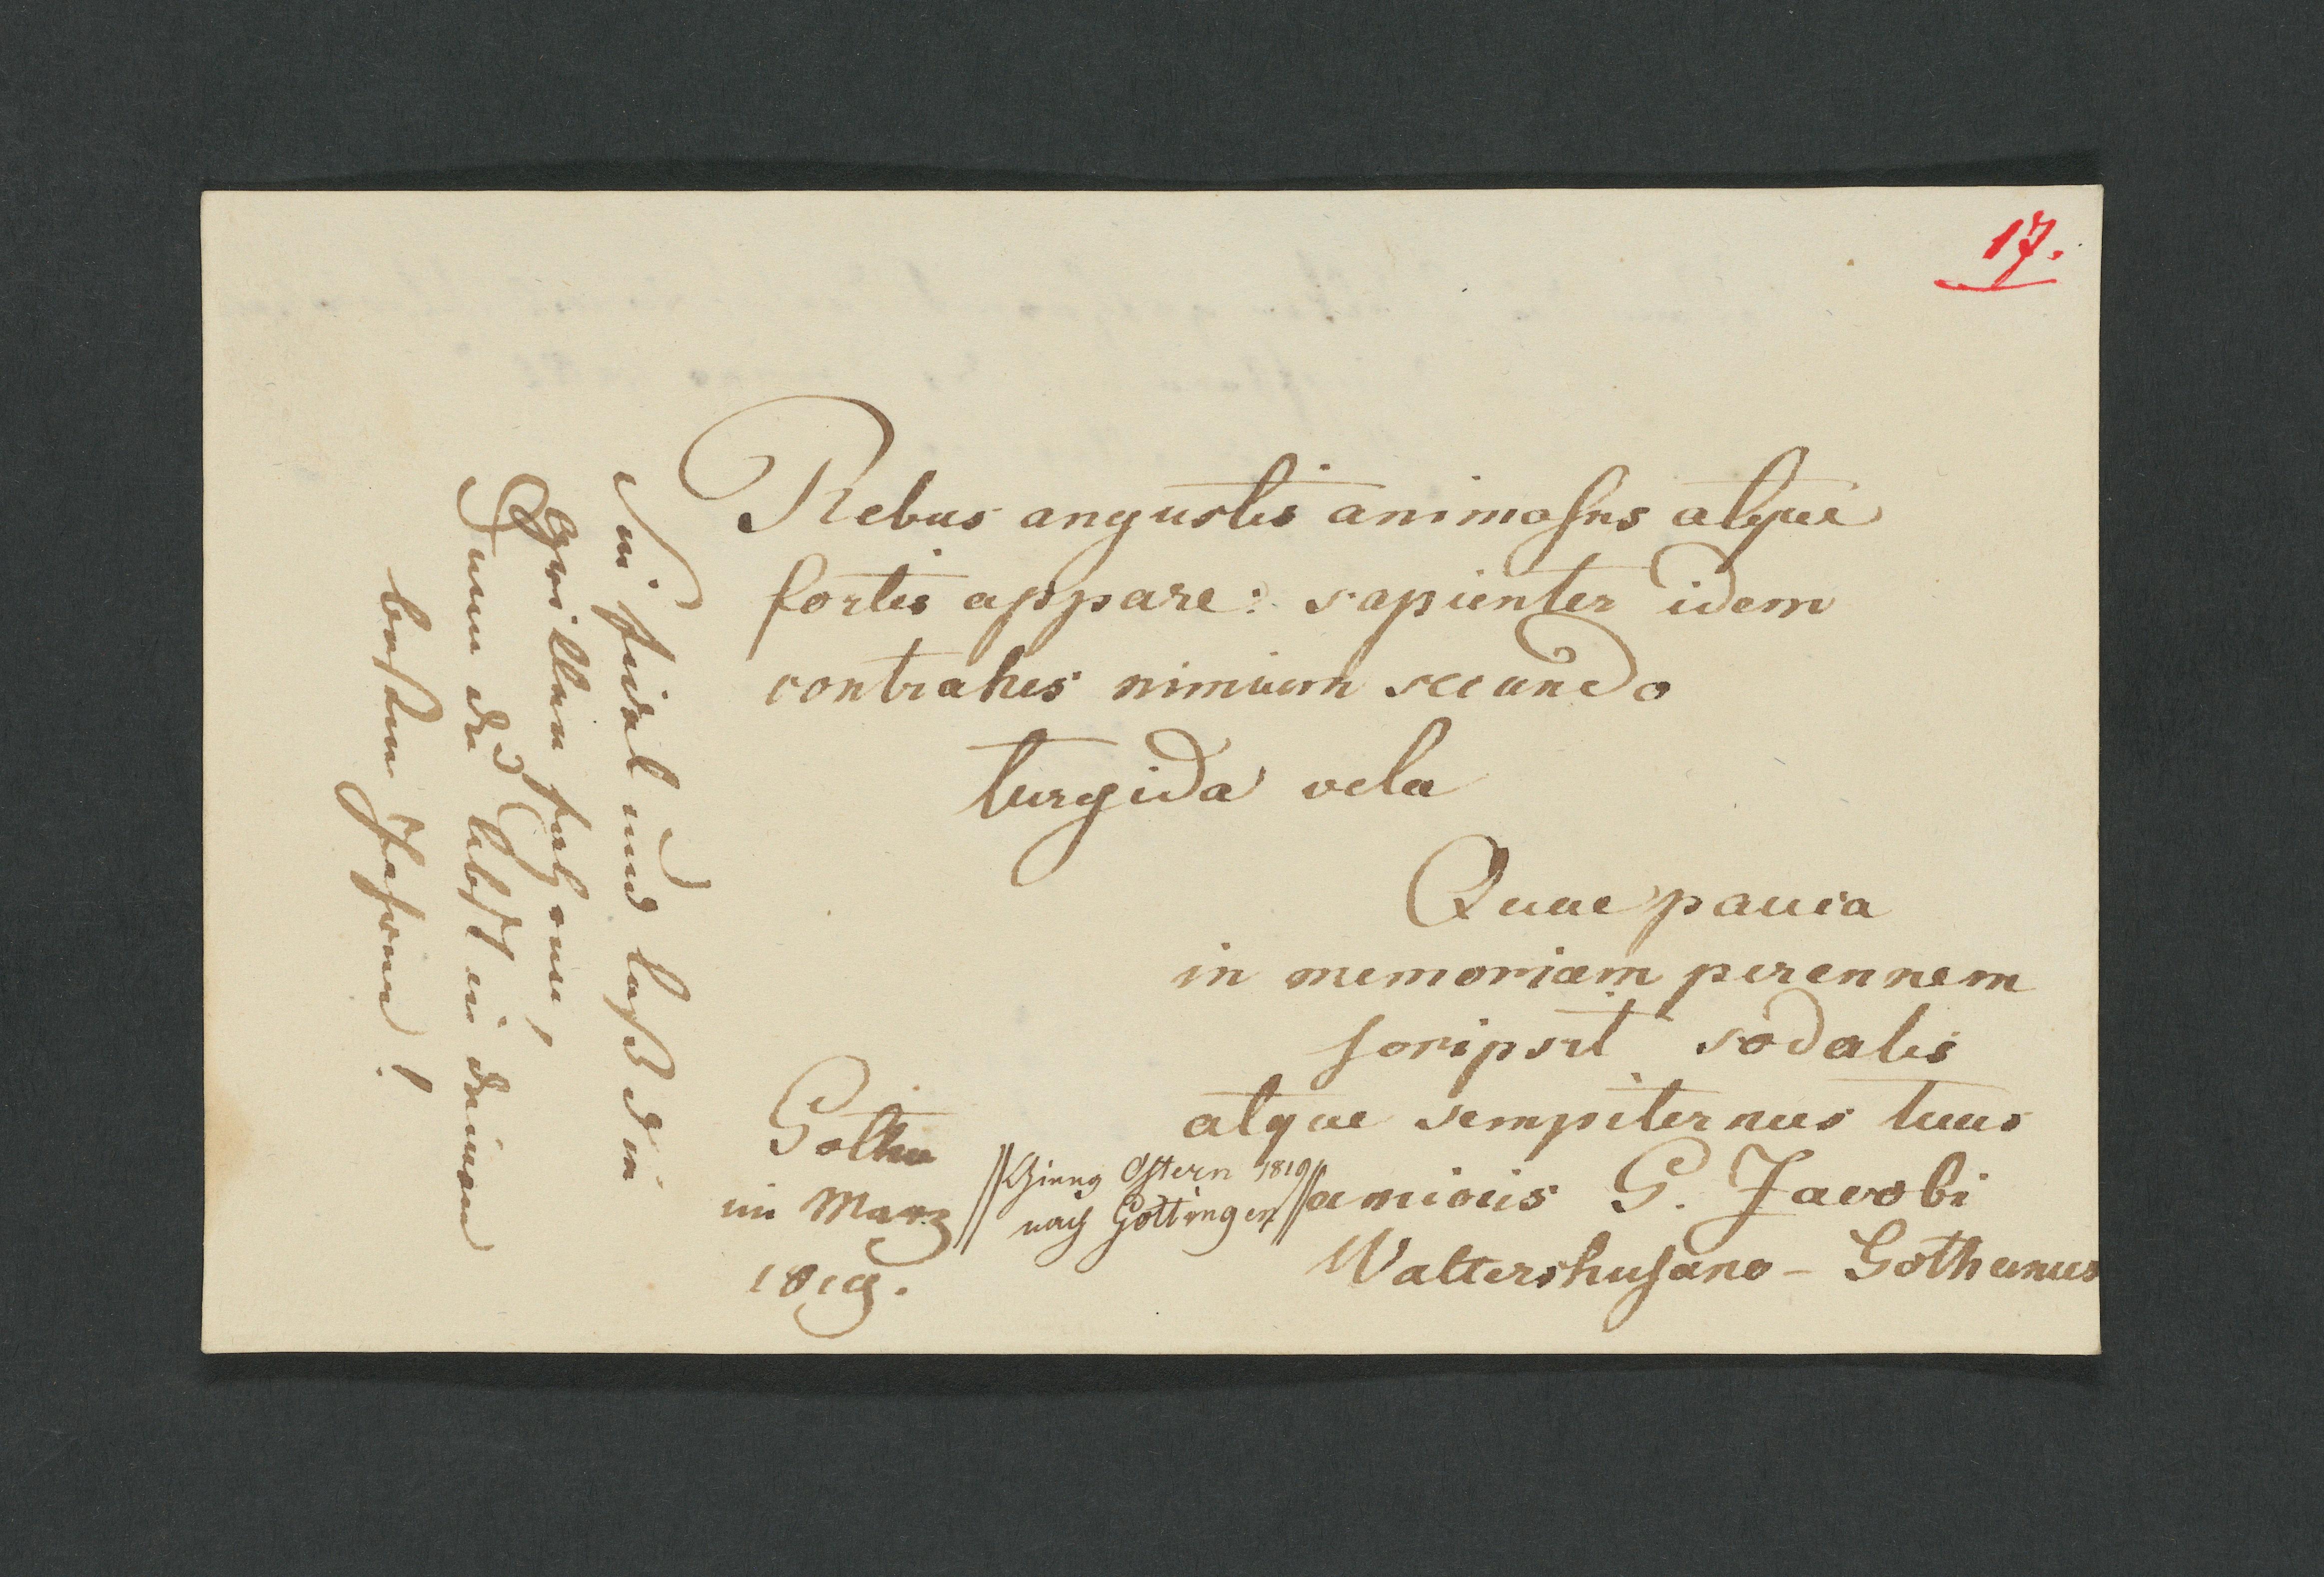 17.
Rebus angustis animosus atque
fortis appare: sapienter idem
contrahes nimium secundo
turgida vela
Quae pauca
in memoriam perennem
scripsit sodalis
atque sempiternus tuus
amicus G. Jacobi
Waltershusano - Gothanus
Gotha
im Marz
1819.
Gieng Ostern 1819
nach Gottingen
Sei fidel und laß die
Grillen fahren,
Denn du lebst in deinen
besten Jahren!